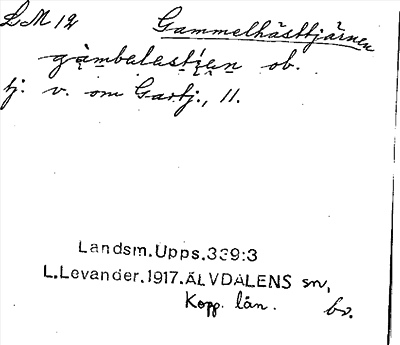 LM 12 Gammelhästtjärnen
gàmbalastí̯ęn ob.
tj. v. om Gastj., 11.
Landsm.Upps.339:3
L.Levander.1917.ÄLVDALENS sn,
Kopp. län. bv.